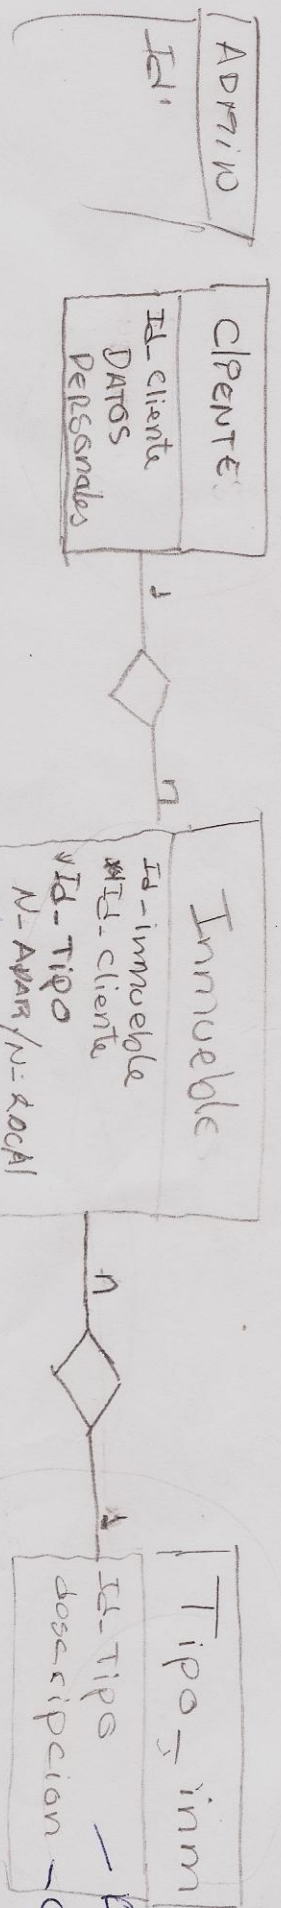 ADMIN
Id
CLIENTE
Id_cliente
DATOS
PERSonales
1
n
Inmueble
Id-inmueble
*Id-cliente
Id-Tipo
N-APAR/N-LOCAl
n
1
Tipo_inm
Id-Tipo
descripcion